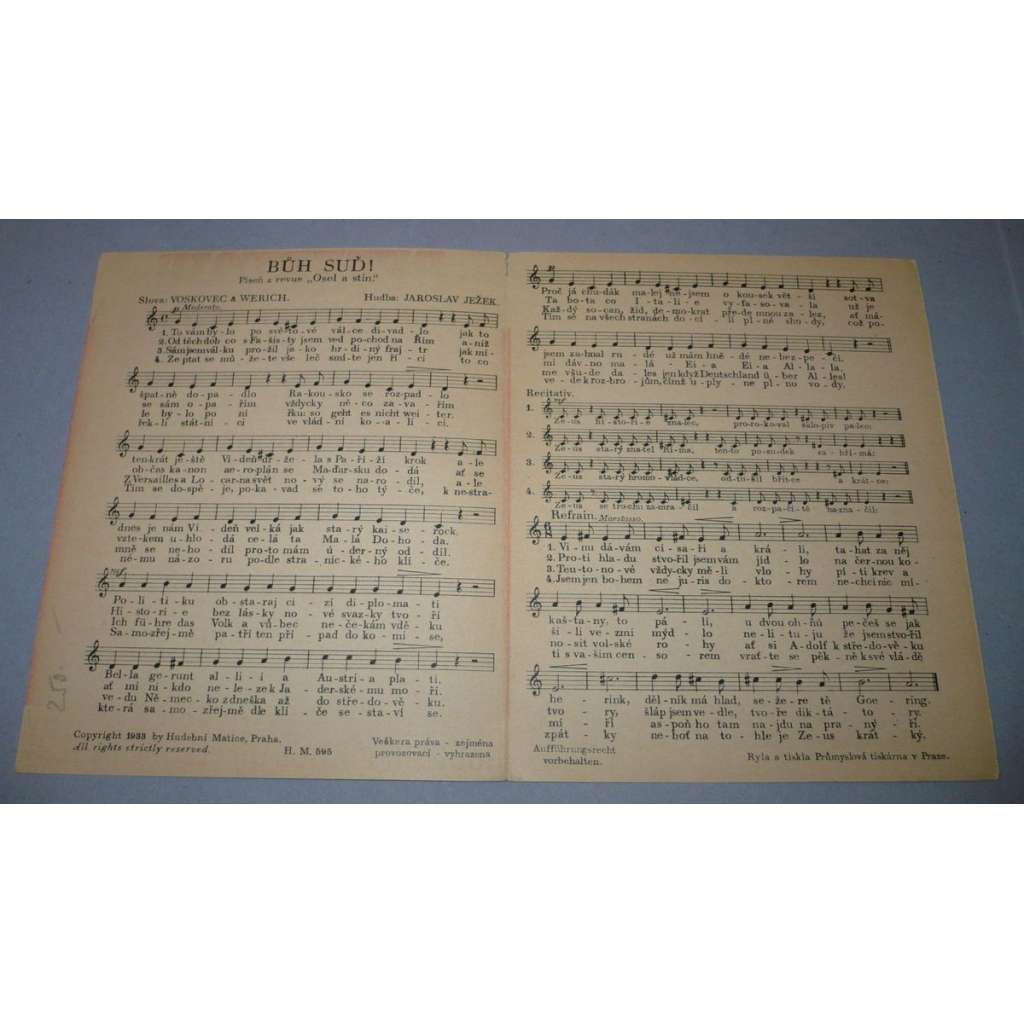 BŮH SUĎ!
Píseň z revue „Osel a stín."
Slova: VOSKOVEC & WERICH. Hudba: JAROSLAV JEŽEK.
Moderato.
1. To vám by-lo po svě-to-vé vál-ce di-vad-lo jak to
2. Od těch dob co s Fa-šis-ty jsem ved po-chod na Řím a-niž
3. Sám jsem vál-ku pro-žil je-ko hr-di-ný fraj-tr jak mi-
4. Ze ptat se mů-že-te vše leč smí-te jen ří-ci to co
špat-ně do-pad-lo Ra-kou-sko se roz-pad-lo
se sám o-pa-řím vždyc-ky ně-co za-va-řím
le by-lo po ní řku: so geht es nicht wei-ter.
řek-li stát-ní-ci ve vlád-ní ko-a-li-ci.
ten-krát ješ-tě Ví-deň dr-že-la s Pa-ří-ží krok a-le
ob-čas ka-non ae-ro-plán se Ma-ďar-sku do-dá ať se
Z Versailles a Lo-car-na svět no-vý se na-ro-dil, a-le
Tím se do-spě-je, po-ka-vad sé to-ho tý-če, k ne-stra-
dnes je nám Ví-deň vel-ká jak sta-rý kai-se-rock.
vzte-kem u-hlo-dá ce-lá ta Ma-lá Do-ho-da.
mně se ne-ho-dil pro-to mám ú-der-ný od-díl.
né-mu ná-zo-ru po-dle stra-nic-ké-ho klí-če.
Po-li-ti-ku ob-sta-raj ci-zí di-plo-ma-ti
Hi-sto-ri-e bez lás-ky no-vé svaz-ky tvo-ří
Ich füh-re das Volk a vů-bec ne-če-kám vdě-ku
Sa-mo-zřej-mě pa-tří ten pří-pad do ko-mi-se,
Bel-la ge-runt al-li-i a Au-stri-a pla-tí.
ať mi ni-kdo ne-le-ze k Ja-der-ské-mu mo-ři.
ve-du Ně-mec-ko z dneška až do stře-do-vě-ku.
kte-rá sa-mo-zřej-mě dle klí-če se-sta-ví se.
Copyright 1933 by Hudební Matice, Praha.
All rights strictly reserved.
H. M. 595
Veškera práva - zejména
provozovací - vyhrazena
250.-
Proč já chu-dák ma-lej ne-jsem o kou-sek vět-ší sot-va
Ta bo-ta co I-ta-li-e vy-fa-so-va-la už je
Kaž-dý so-can, žid, de-mo-krat pře-de mnou za-lez, ať má-
Tím se na všech stranách do-cí-lí pl-né sho-dy, což po-
jsem za-hnal ru-dé už mám hně-dé ne-bez-pe-čí.
mi dáv-no ma-lá Ei-a Ei-a Al-la-la.
me všu-de da-les jen když Deutschland ü-ber Al-les!
ve-de k roz-bro-jům, čímž u-ply-ne pl-no vo-dy.
Recitativ.
1. Ze-us hi-sto-ri-e zna-lec, pro-ro-ko-val šálo-piv palec:
2. Ze-us sta-rý zna-tel Ří-ma, ten-to po-su-dek za-hří-má:
3. Ze-us sta-rý hromo-vlád-ce, od-to-čil bři-tce a krát-ce:
4. Ze-us se tro-chu za-mra-čil a roz-pa-či-tě na-zna-čil:
Refrain. Maestoso.
1. Vi-nu dá-vám cí-sa-ři a krá-li, ta-hat za něj
2. Pro-ti hla-du stvo-řil jsem vám jíd-lo na čer-nou ko-
3. Teu-to-no-vé vždyc-ky mě-li vlo-hy pí-ti krev a
4. Jsem jen bo-hem ne ju-ris dok-to-rem ne-chci nic mí-
kaš-ta-ny. to pá-lí, u dvou oh-ňů pe-češ se jak
ši-li ve-zmi mýd-lo ne-li-tu-ju že jsem stvo-řil
no-sit vol-ské ro-hy ať si A-dolf k stře-do-vě-ku
ti s va-ším cen-so-rem vrať-te se pěk-ně k své vlá-dě
he-rink, děl-ník má hlad, se-že-re tě Goe-ring.
tvo-ry, šláp jsem ve-dle, tvo-ře dik-tá-to-ry.
mí-ří as-poň ho tam na-jdu na pra-ný-ři.
zpát-ky ne-boť na to-hle je Ze-us krát-ký.
Aufführungsrecht
vorbehalten.
Ryla a tiskla Průmyslová tiskárna v Praze.